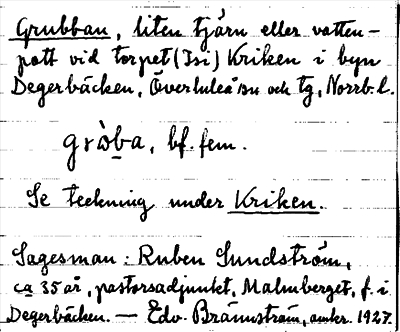 Grubban, liten tjärn eller vatten-
pott vid torpet (Isi) Kriken i byn
Degerbäcken, Överluleå sn och tg, Norrb. l.
grò̱ba, bf. fem.
Se teckning under Kriken.
Sagesman: Ruben Sundström,
ca 35 år, pastorsadjunkt, Malmberget, f. i
Degerbäcken. — Edv. Brännström, amker. 1927.